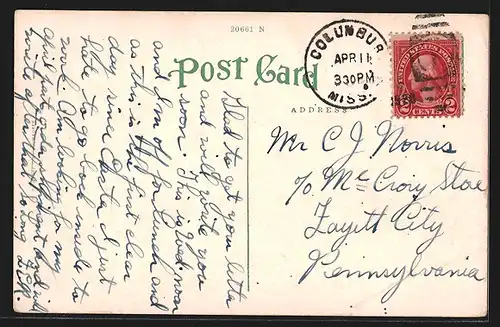 20661 N
Post Card
COLUMBUS
APR 11
3 30 PM
MISS.
UNITED STATES POSTAGE
2 CENTS 2
ADDRESS
Mr C J Norris
c/o Mc Crory Stoe
Fayett City
Pennsylvania
Glad to get your letter
and will write you
soon. This is Wed. noon
and I'm off for lunch and
as this is the first clear
day since Easter I just
hate to go back inside to
work. Am looking for my
girl friend
miles after that. So Long